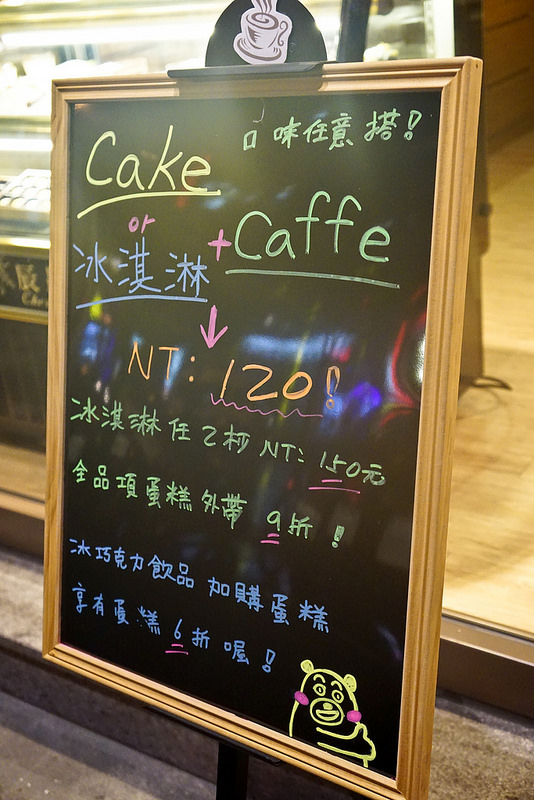 口味任意搭!
Cake
or
冰淇淋
+Caffe
NT: 120!
冰淇淋任乙杯 NT: 150元
全品項蛋糕外帶 9折!
冰巧克力飲品 加購蛋糕
享有蛋糕 6折喔!